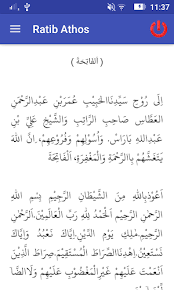 11:37
Ratib Athos
( اَلْفَاتِحَةُ )
اِلَى رُوْحِ سَيِّدِنَاالْحَبِيْبِ عُمَرَبْنِ عَبْدِالرَّحْمٰنِ
الْعَطَّاسِ صَاحِبِ الرَّاتِبِ وَالشَّيْخِ عَلِيِّ بْنِ
عَبْدِاللهِ بَارَاسْ. وَاُصُوْلِهِمْ وَفُرُوْعِهِمْ اَنَّ اللهَ
يَتَغَشَّهُمْ بِاالرَّحْمَةِ وَالْمَغْفِرَةِ, اَلْفَاتِحَةُ
اَعُوْذُبِاللهِ مِنَ الشَّيْطَانِ الرَّجِيْمِ بِسْمِ اللهِ
الرَّحْمٰنِ الرَّحِيْمِ اَلْحَمْدُ لِلّٰهِ رَبِّ الْعَالَمِيْنَ,اَلرَّحْمٰنِ
الرَّحِيْمِ,مٰلِكِ يَوْمِ الدِّيْنِ.اِيَّاكَ نَعْبُدُ وَاِيَّاكَ
نَسْتَعِيْنُ.اِهْدِنَاالصِّرَاطَ الْمُسْتَقِيْمَ,صِرَاطَ الَّذِيْنَ
اَنْعَمْتَ عَلَيْهِمْ غَيْرِالْمَغْضُوْبِ عَلَيْهِمْ وَلَاالضَّا